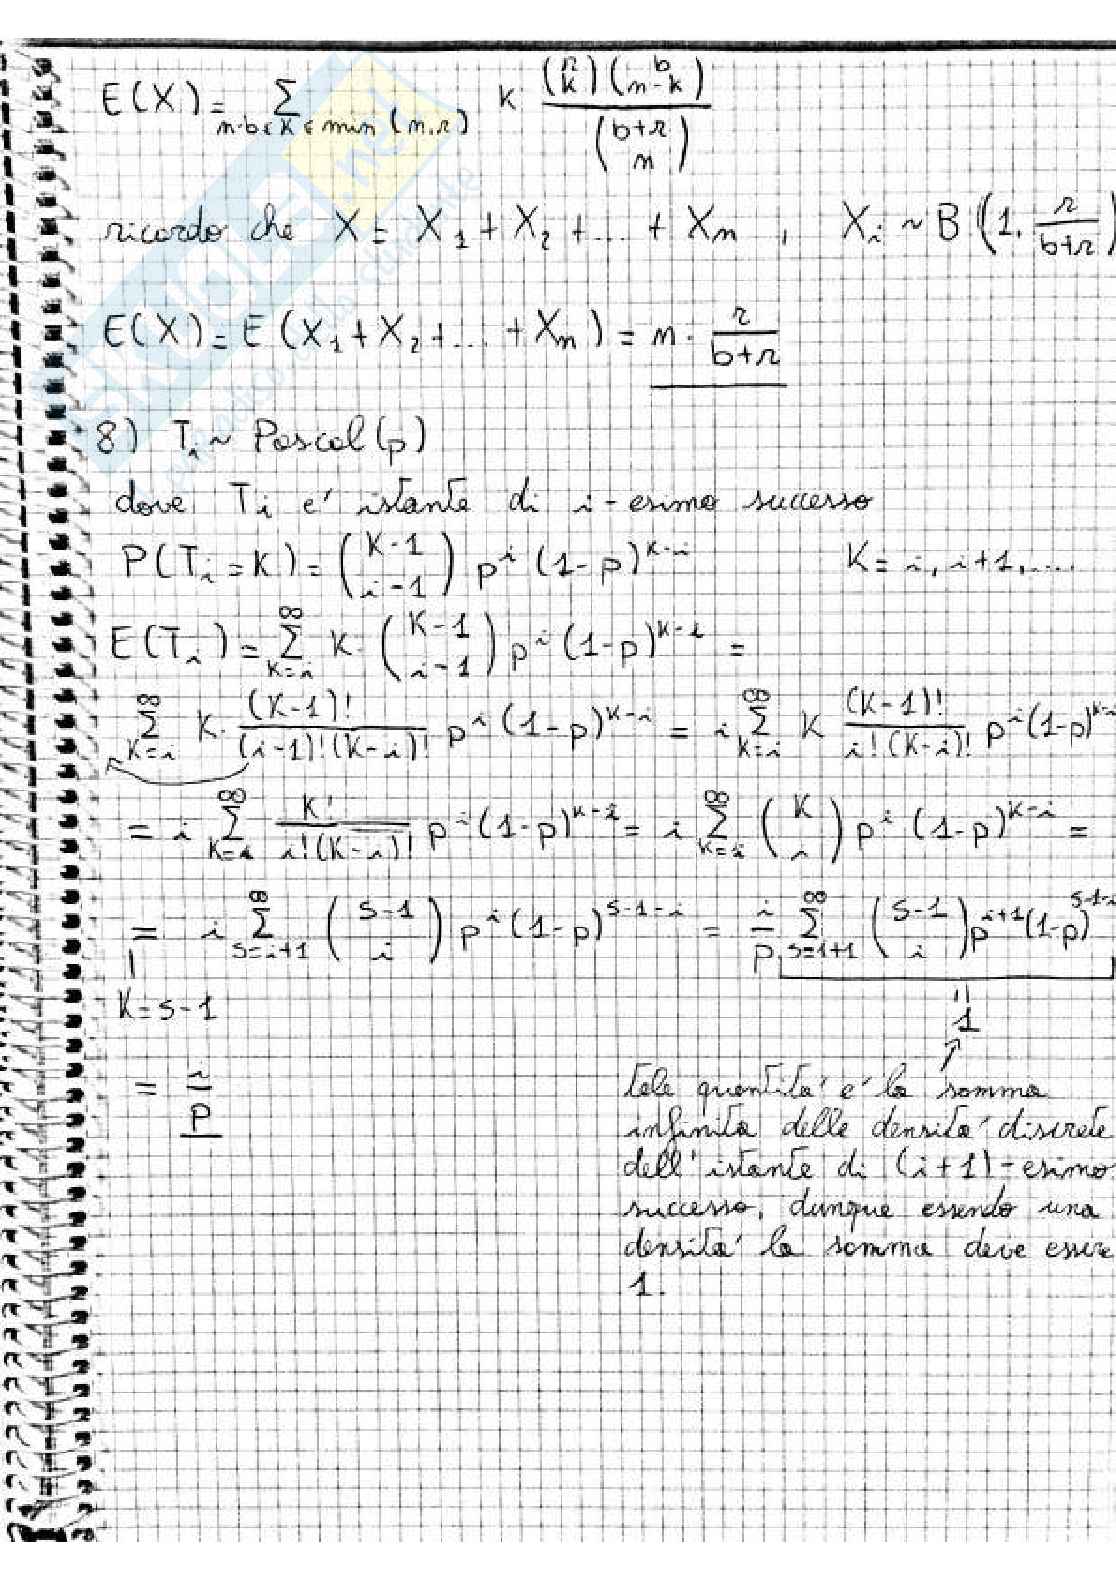 E(X) = Σ_{n-b≤K≤min(n,r)} K \frac{\binom{r}{K}\binom{b}{n-K}}{\binom{b+r}{n}}
ricordo che X = X_1 + X_2 + ... + X_n , X_i ~ B(1, \frac{r}{b+r})
E(X) = E(X_1 + X_2 + ... + X_n) = n · \frac{r}{b+r}
8) T_i ~ Pascal(p)
dove T_i e' istante di i-esimo successo
P(T_i = K) = \binom{K-1}{i-1} p^i (1-p)^{K-i} K = i, i+1, ....
E(T_i) = Σ_{K=i}^{∞} K · \binom{K-1}{i-1} p^i (1-p)^{K-i} =
Σ_{K=i}^{∞} K · \frac{(K-1)!}{(i-1)!(K-i)!} p^i (1-p)^{K-i} = i Σ_{K=i}^{∞} K \frac{(K-1)!}{i!(K-i)!} p^i (1-p)^{K-i}
= i Σ_{K=i}^{∞} \frac{K!}{i!(K-i)!} p^i (1-p)^{K-i} = i Σ_{K=i}^{∞} \binom{K}{i} p^i (1-p)^{K-i} =
= i Σ_{s=i+1}^{∞} \binom{s-1}{i} p^i (1-p)^{s-1-i} = \frac{i}{p} Σ_{s=i+1}^{∞} \binom{s-1}{i} p^{i+1} (1-p)^{s-1-i}
K = s-1
1
= \frac{i}{p}
tale quantita' e' la somma
infinita delle densita' discrete
dell'istante di (i+1)-esimo
successo, dunque essendo una
densita' la somma deve essere
1.